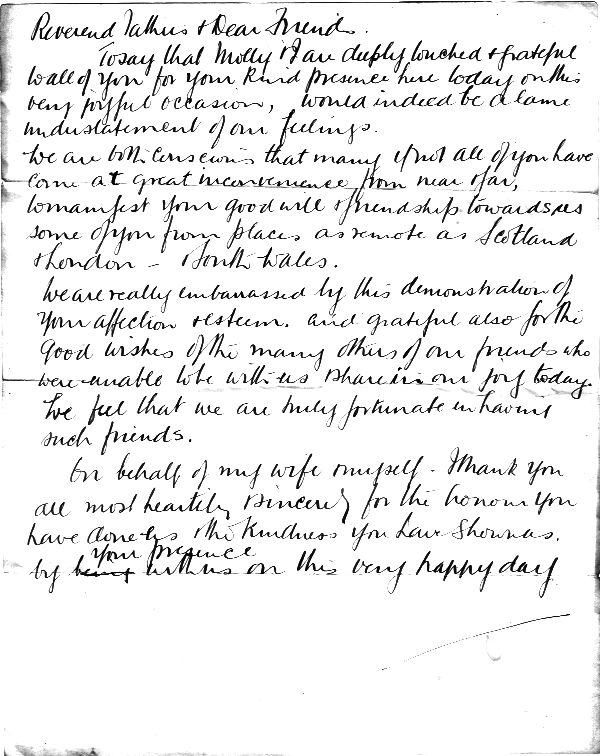 Reverend Fathers & Dear Friends.
To say that Molly & I are deeply touched & grateful
to all of you for your kind presence here today on this
very joyful occasion, would indeed be a lame
understatement of our feelings.
We are both conscious that many if not all of you have
come at great inconvenience from near & far,
to manifest your goodwill & friendship towards us
some of you from places as remote as Scotland
& London - & South Wales.
We are really embarrassed by this demonstration of
your affection & esteem. and grateful also for the
good wishes of the many others of our friends who
were unable to be with us & share in our joy today.
We feel that we are truly fortunate in having
such friends.
On behalf of my wife & myself - I thank you
all most heartily & sincerely for the honour you
have done us & the kindness you have shown us.
your presence
by being with us on this very happy day